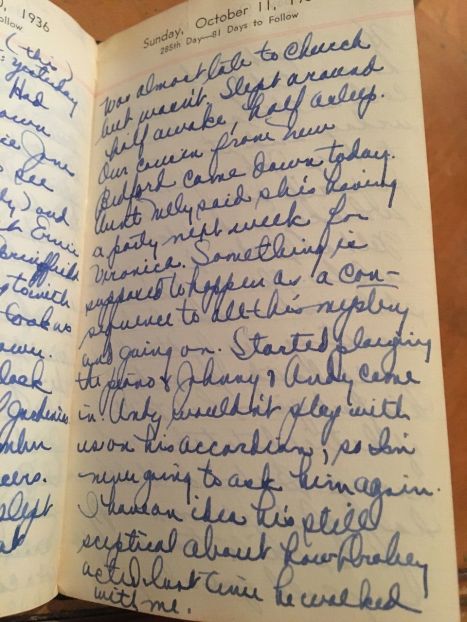 1936
ollow
(this)
yesterday
Had
own
Jane
see
and
Ernie
with
took us
ower.
lock
mber
eers.
slept
at
Sunday, October 11, 19
285th Day—81 Days to Follow
Was almost late to church
but wasn't. Slept around
half awake, half asleep.
Our cousin from New
Bedford came down today.
Aunt Nelly said she's having
a party next week for
Veronica. Something is
supposed to happen as a con-
sequence to all this mystery
and going on. Started playing
the piano & Johnny & Andy came
in. Andy wouldn't play with
us on his accordian, so I'm
never going to ask him again.
I have an idea he's still
sceptical about how
acted last time he walked
with me.